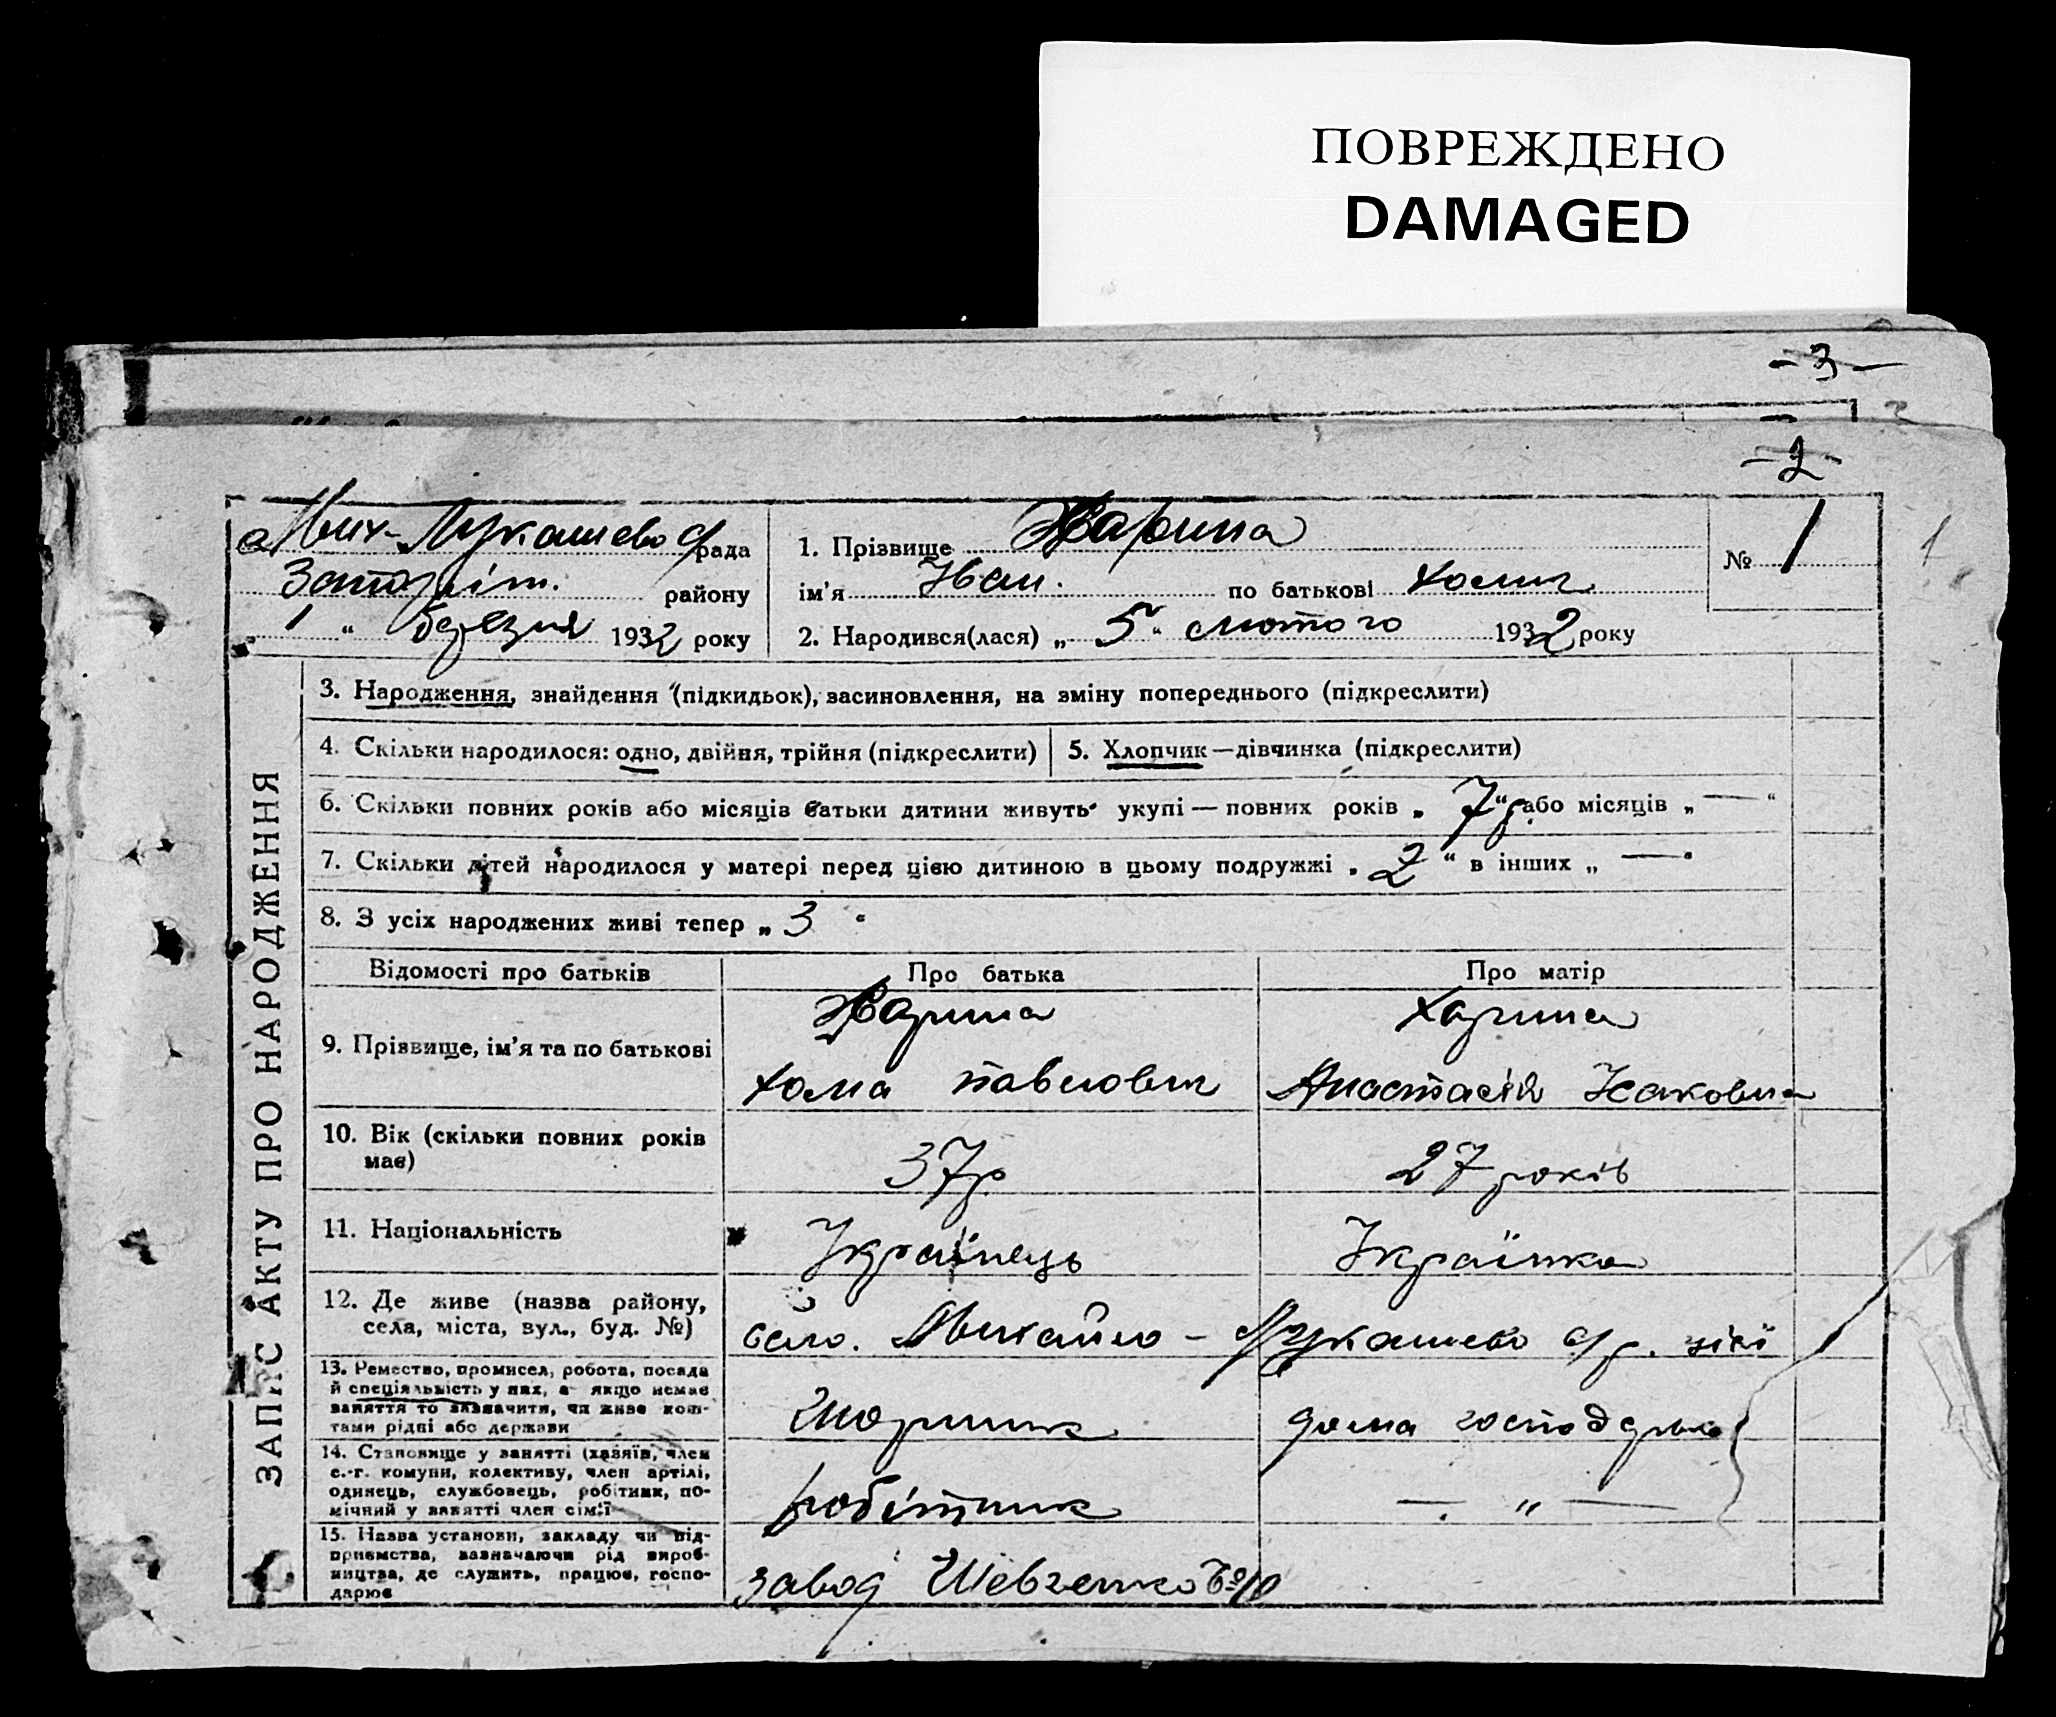 ПОВРЕЖДЕНО
DAMAGED
-3-
-2-
Мих-Лукашево с/рада
району
1 " березня 1932 року
1. Прізвище Харина
ім'я Іван. по батькові Хомич
2. Народився(лася) „ 5 " лютого 1932 року
№ 1
1
ЗАПИС АКТУ ПРО НАРОДЖЕННЯ
3. Народження, знайдення (підкидьок), засиновлення, на зміну попереднього (підкреслити)
4. Скільки народилося: одно, двійня, трійня (підкреслити)
5. Хлопчик—дівчинка (підкреслити)
6. Скільки повних років або місяців батьки дитини живуть укупі — повних років „ 7 р. " або місяців „ — "
7. Скільки дітей народилося у матері перед цією дитиною в цьому подружжі „ 2 " в інших „ — "
8. З усіх народжених живі тепер „ 3 "
Відомості про батьків
Про батька
Про матір
9. Прізвище, ім'я та по батькові
Харина
Хома Павлович
Харина
Анастасія Ісаковна
10. Вік (скільки повних років
має)
37р
27 років
11. Національність
Українець
Українка
12. Де живе (назва району,
села, міста, вул., буд. №)
село. Михайло - Лукашево с/р.
13. Ремество, промисел, робота, посада
й спеціяльність у них, а якщо немає
заняття то зазначити, чи живе кош-
тами рідні або держави
дома господарка
14. Становище у занятті (хазяїв, член
с.-г. комуни, колективу, член артілі,
одинець, службовець, робітник, по-
мічний у занятті член сім'ї
робітник
— " —
15. Назва установи, закладу чи під-
приємства, зазначаючи рід вироб-
ництва, де служить, працює, госпо-
дарює
завод Шевченко